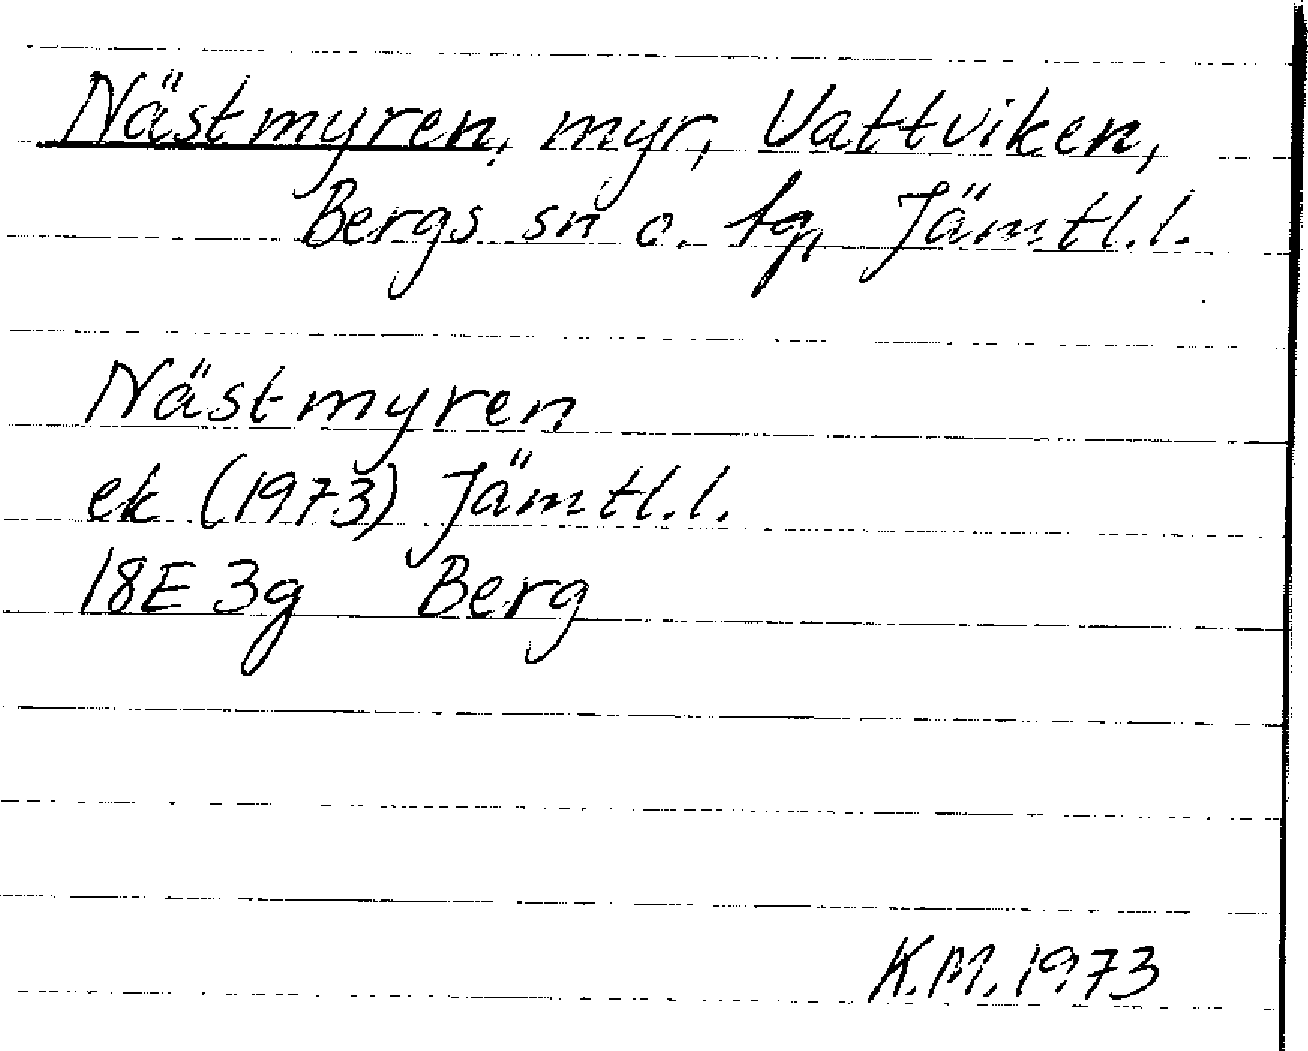 Nästmyren, myr, Vattviken,
Bergs sn o. tg, Jämtl.l.
Nästmyren
ek (1973) Jämtl.l.
18E 3g Berg
K.M. 1973